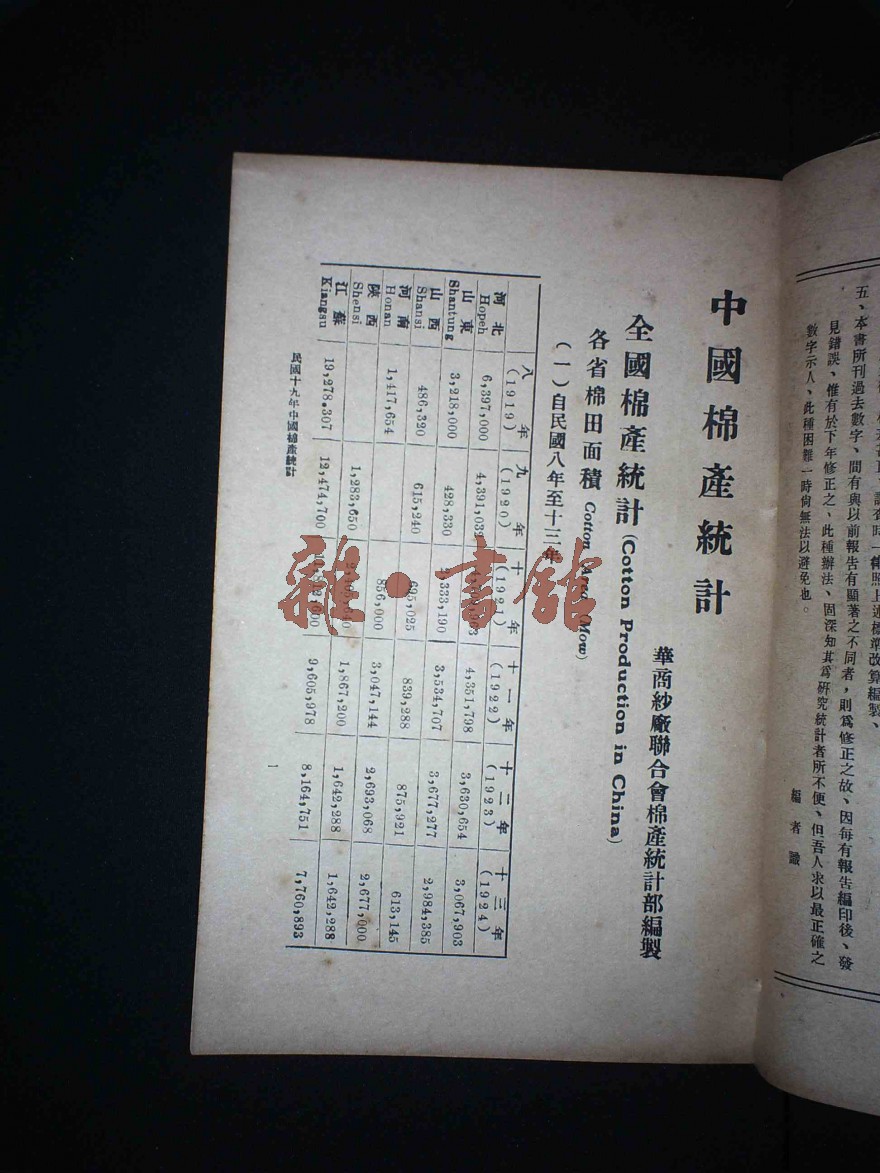 調查時一律照上述標準改算編製、
五、本書所刊過去數字、間有與以前報告有顯著之不同者，則爲修正之故、因每有報告編印後、發
見錯誤、惟有於下年修正之、此種辦法、固深知其爲研究統計者所不便、但吾人求以最正確之
數字示人、此種困難一時尚無法以避免也。
編者識
中國棉產統計
華商紗廠聯合會棉產統計部編製
全國棉產統計 (Cotton Production in China)
各省棉田面積 Cotton Area (Mow)
(一) 自民國八年至十三年
八年 九年 十年 十一年 十二年 十三年
(1919) (1920) (1921) (1922) (1923) (1924)
河北 Hopeh 6,397,000 4,391,039 4,351,798 3,630,654 3,067,903
山東 Shantung 3,218,000 428,330 3,534,707 3,677,277 2,984,385
山西 Shansi 486,320 615,240 695,025 839,288 875,921 613,145
河南 Honan 1,417,654 856,000 3,047,144 2,693,068 2,677,000
陝西 Shensi 1,283,650 1,867,200 1,642,288 1,642,288
江蘇 Kiangsu 19,278.307 12,474,700 9,605,978 8,164,751 7,760,893
民國十九年中國棉產統計
1
雜·書館